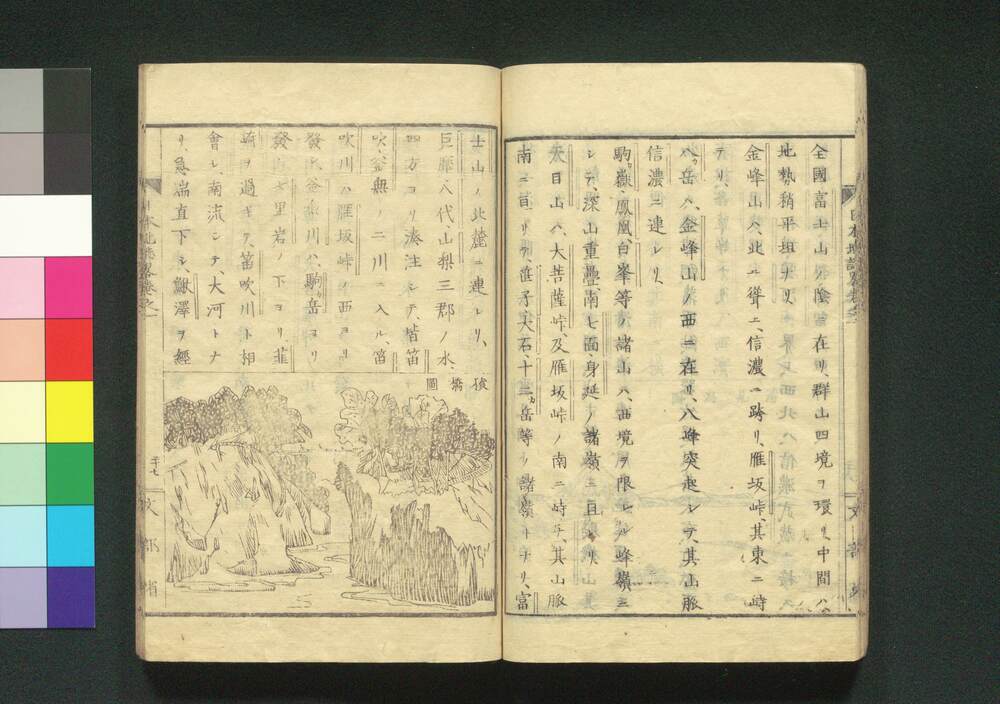 全國富士山ノ陰ニ在リ、群山四境ヲ環リ、中間ハ、
地勢稍平坦ナリ、
金峰山ハ、北ニ聳エ、信濃ニ跨リ、雁坂峠、其東ニ峙
テリ、
八ヶ岳ハ、金峰山ノ西ニ在リ、八峰突起シテ、其山脈
信濃ニ連レリ、
駒ヶ嶽、鳳凰、白峯等ノ諸山ハ、西境ヲ限レル峰嶺ニ
シテ、深山重疊、南七面、身延ノ諸嶺ニ亘レリ、
天目山ハ、大菩薩峠、及雁坂峠ノ南ニ峙チ、其山脈
南ニ亘リテ、大石、十二ヶ岳等ノ諸嶺トナリ、富
士山ノ北麓ニ連レリ、
巨摩、八代、山梨三郡ノ水、
四方ヨリ湊注シテ、皆笛
吹、釜無ノ二川ニ入ル、笛
吹川ハ、雁坂峠ノ西ヨリ
發シ、釜無川ハ、駒ヶ岳ヨリ
發シ、七里岩ノ下ヨリ、韮
崎ヲ過ギテ、笛吹川ト相
會シ、南流シテ、大河トナ
リ、急湍直下シ、鰍澤ヲ經
猿橋圖
日本地誌略卷之一
二十七
文部省